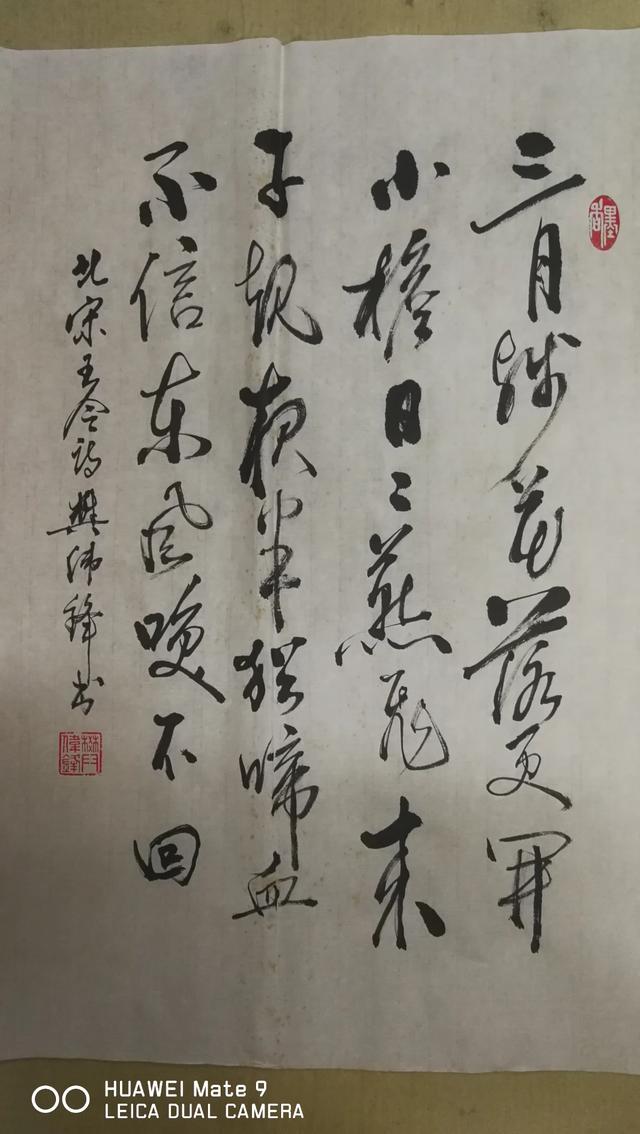 三月残花落更開
小檐日〻燕飛来
子規夜半猶啼血
不信东风唤不回
北宋王令诗樊伟锋书
墨香
樊偉鋒印
HUAWEI Mate 9
LEICA DUAL CAMERA